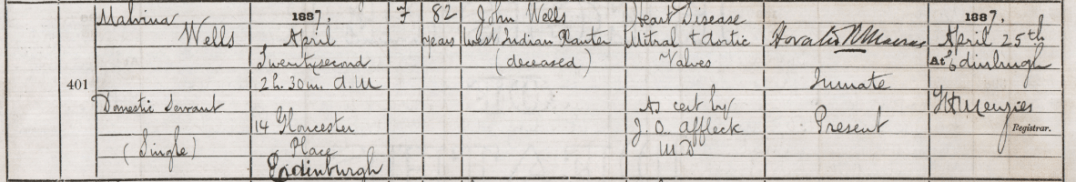 401
Malvina
Wells
Domestic Servant
(Single)
1887.
April
Twentysecond
2h. 30m. A.M
14 Gloucester
Place
Edinburgh
F
82
years
John Wells
West Indian Planter
(deceased)
Heart Disease
Mitral & Aortic
Valves
As cert by
J. O. Affleck
M D
Horatio R Macrae
Inmate
Present
1887.
April 25th
At Edinburgh
Menzies
Registrar.